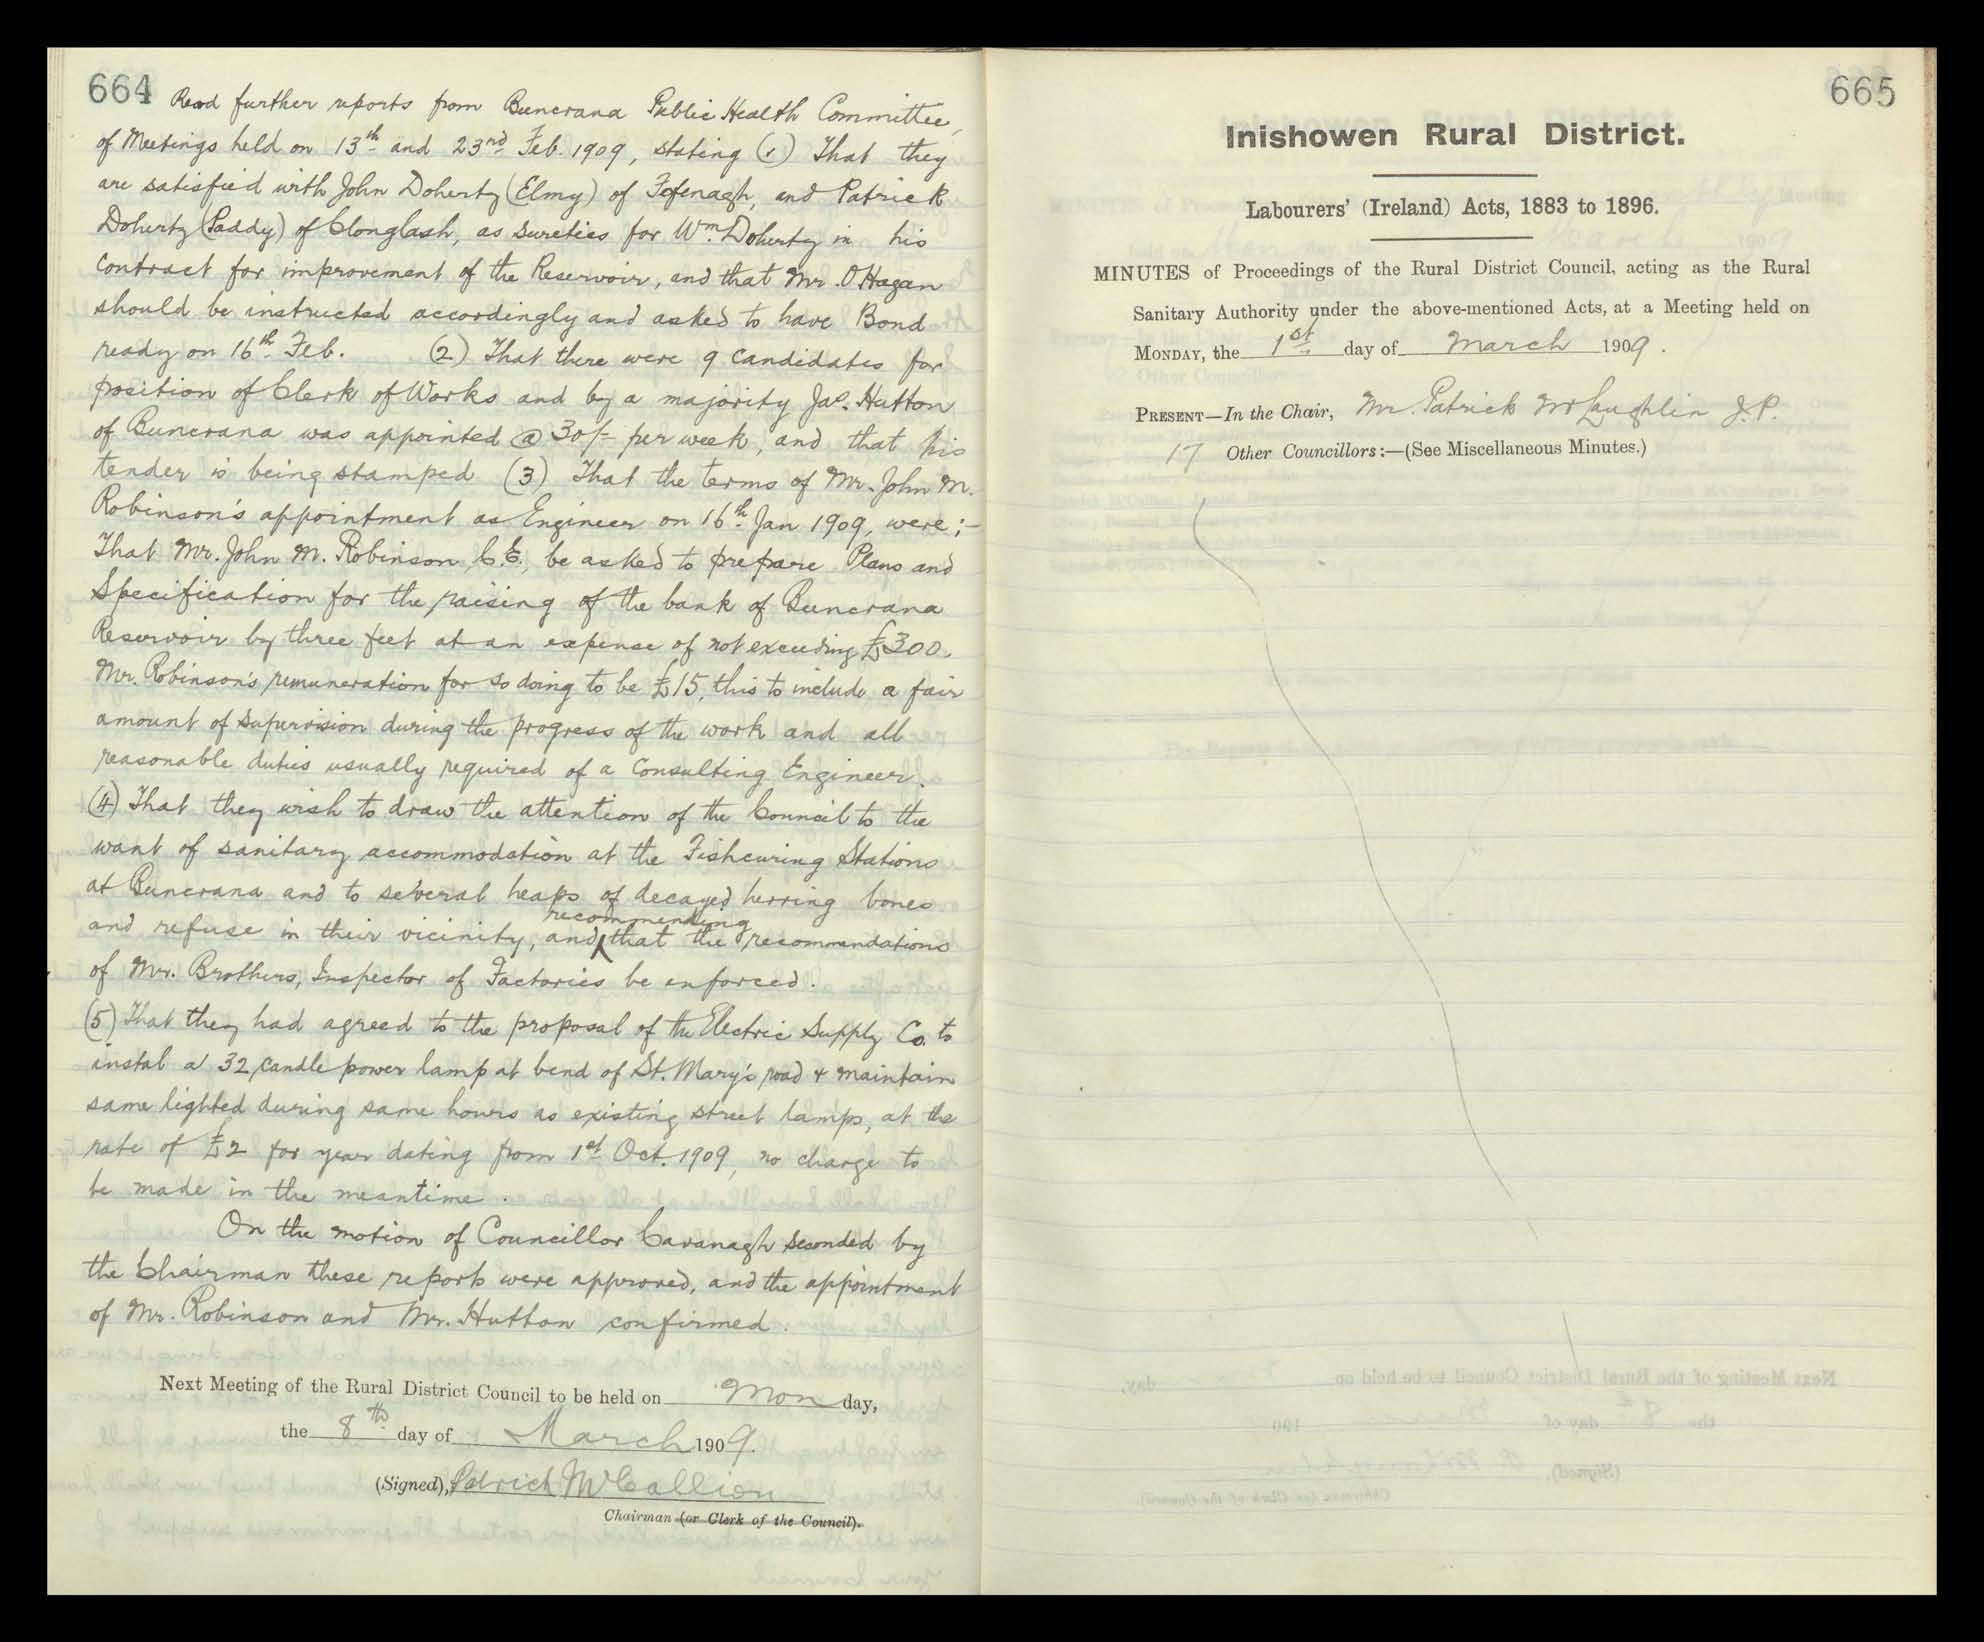 664
Read further reports from Buncrana Public Health Committee,
of Meetings held on 13th and 23rd Feb. 1909, stating (1) That they
are satisfied with John Doherty (Elmy) of Tefenagh, and Patrick
Doherty (Paddy) of Clonglash, as sureties for Wm. Doherty in his
contract for improvement of the Reservoir, and that Mr. O'Hagan
should be instructed accordingly and asked to have Bond
ready on 16th Feb. (2) That there were 9 candidates for
position of Clerk of Works and by a majority Jas. Hutton
of Buncrana was appointed @ 30/- per week, and that his
tender is being stamped (3) That the terms of Mr. John M.
Robinson's appointment as Engineer on 16th Jan 1909, were:-
That Mr. John M. Robinson C.E., be asked to prepare Plans and
Specification for the raising of the bank of Buncrana
Reservoir by three feet at an expense of not exceeding £300.
Mr. Robinson's remuneration for so doing to be £15, this to include a fair
amount of supervision during the progress of the work and all
reasonable duties usually required of a Consulting Engineer.
(4) That they wish to draw the attention of the Council to the
want of sanitary accommodation at the Fishcuring Stations
at Buncrana and to several heaps of decayed herring bones
and refuse in their vicinity, and recommending that the recommendations
of Mr. Brothers, Inspector of Factories be enforced.
(5) That they had agreed to the proposal of the Electric Supply Co. to
instal a 32 candle power lamp at bend of St. Mary's road & maintain
same lighted during same hours as existing street lamps, at the
rate of £2 for year dating from 1st Oct. 1909, no charge to
be made in the meantime.
On the motion of Councillor Cavanagh seconded by
the Chairman these reports were approved, and the appointment
of Mr. Robinson and Mr. Hutton confirmed.
Next Meeting of the Rural District Council to be held on Mon day,
the 8th day of March 1909.
(Signed), Patrick McCallion
Chairman (or Clerk of the Council).
665
Inishowen Rural District.
Labourers' (Ireland) Acts, 1883 to 1896.
MINUTES of Proceedings of the Rural District Council, acting as the Rural
Sanitary Authority under the above-mentioned Acts, at a Meeting held on
MONDAY, the 1st day of March 1909.
PRESENT—In the Chair, Mr. Patrick McLaughlin J.P.
17 Other Councillors:—(See Miscellaneous Minutes.)